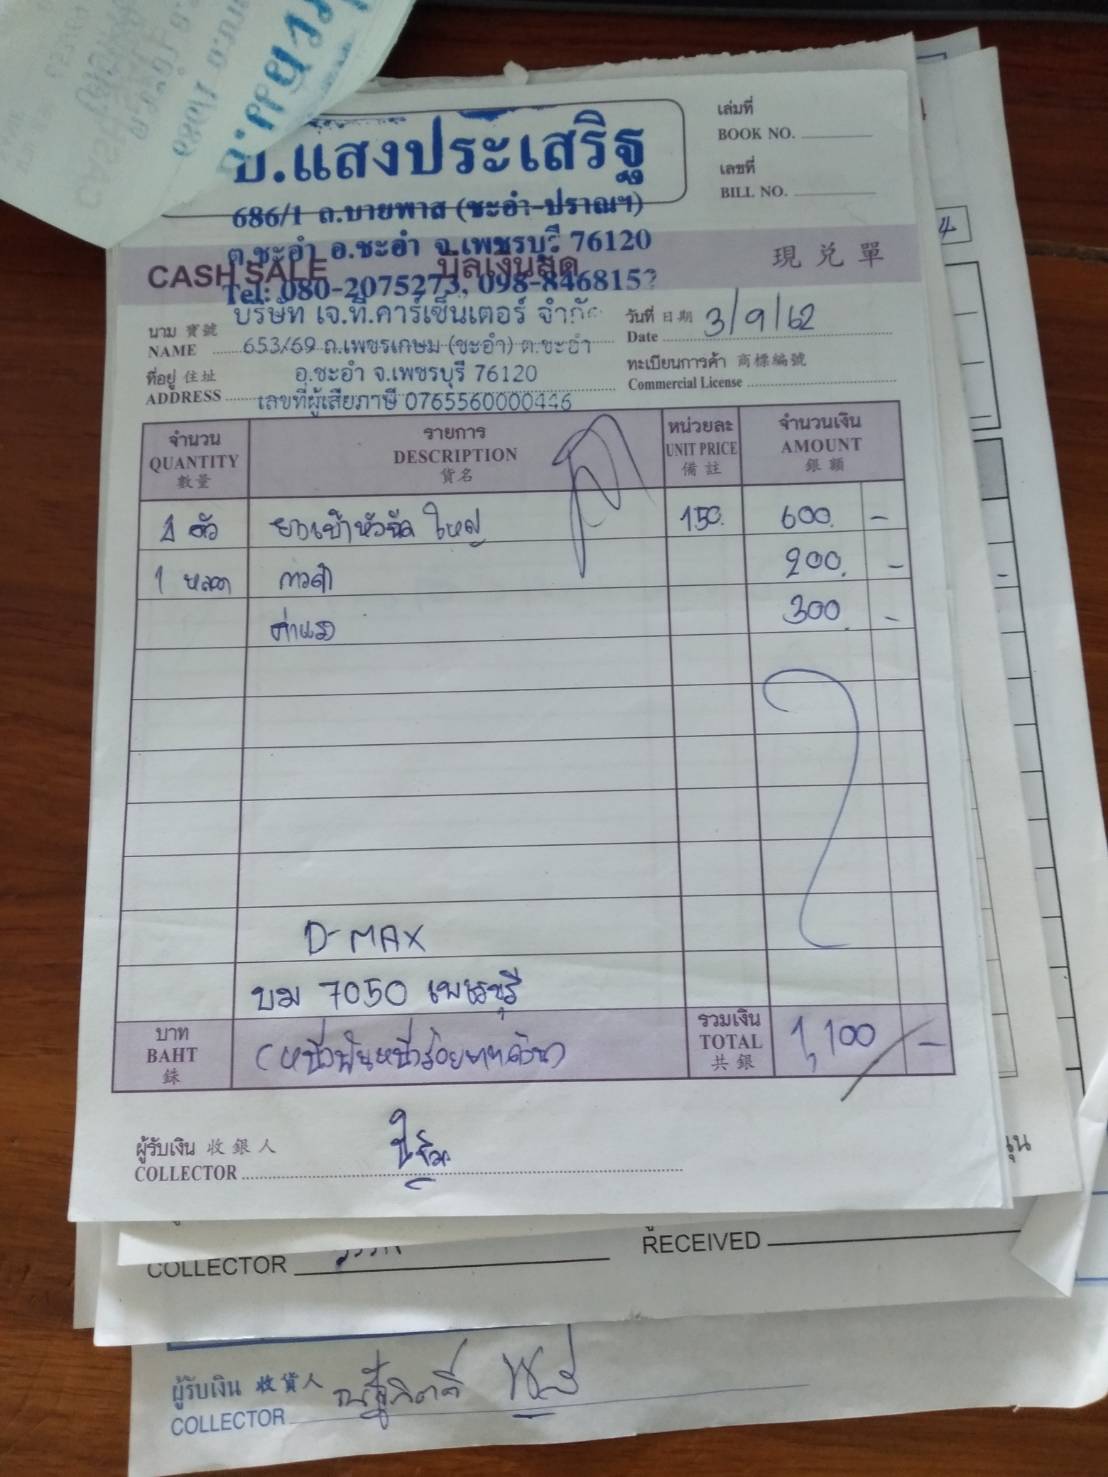 ป.แสงประเสริฐ
686/1 ถ.บายพาส (ชะอำ-ปราณฯ)
ต.ชะอำ อ.ชะอำ จ.เพชรบุรี 76120
Tel: 080-2075273, 098-8468152
เล่มที่
BOOK NO.
เลขที่
BILL NO.
CASH SALE บิลเงินสด 現兌單
บริษัท เจ.ที.คาร์เซ็นเตอร์ จำกัด
653/69 ถ.เพชรเกษม (ชะอำ) ต.ชะอำ
อ.ชะอำ จ.เพชรบุรี 76120
เลขที่ผู้เสียภาษี 0765560000446
นาม 寶號
NAME
ที่อยู่ 住址
ADDRESS
วันที่ 日期 3/9/62
Date
ทะเบียนการค้า 商標編號
Commercial License
จำนวน รายการ หน่วยละ จำนวนเงิน
QUANTITY DESCRIPTION UNIT PRICE AMOUNT
數量 貨名 備註 銀額
ตัว ยางเบ้าหัวฉีด ใหญ่ 150. 600. -
1 หลอด กาวดำ 200. -
ค่าแรง 300. -
D-MAX
บม 7050 เพชรบุรี
บาท
BAHT
銖
(หนึ่งพันหนึ่งร้อยบาทถ้วน)
รวมเงิน
TOTAL
共銀
1,100 -
ผู้รับเงิน 收銀人
COLLECTOR
COLLECTOR
RECEIVED
ผู้รับเงิน 收貨人
COLLECTOR